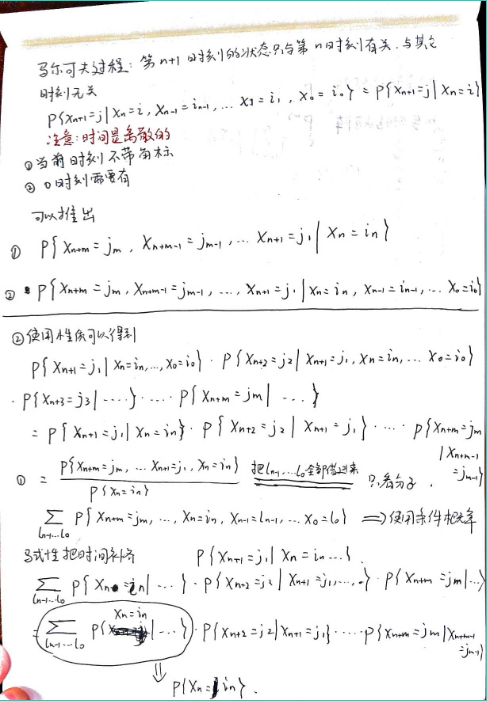 马尔可夫过程: 第n+1时刻的状态只与第n时刻有关,与其它
时刻无关
P{Xn+1=j|Xn=i, Xn-1=in-1, ... X1=i1, X0=i0} = P{Xn+1=j|Xn=i}
注意:时间是离散的
①当前时刻不带角标
② 0时刻需要有
可以推出
① P{Xn+m=jm, Xn+m-1=jm-1, ... Xn+1=j1|Xn=in}
② P{Xn+m=jm, Xn+m-1=jm-1, ..., Xn+1=j1|Xn=in, Xn-1=in-1, ... X0=i0}
②使用性质可以得到
P{Xn+1=j1|Xn=in,...,X0=i0} · P{Xn+2=j2|Xn+1=j1, Xn=in, ... X0=i0}
· P{Xn+3=j3|....} ..... P{Xn+m=jm|...}
= P{Xn+1=j1|Xn=in} · P{Xn+2=j2|Xn+1=j1} · ... P{Xn+m=jm
|Xn+m-1
=jm-1}
① = P{Xn+m=jm, ... Xn+1=j1, Xn=in} 把ln-1...l0全部 进来 只看分子.
P{Xn=in}
∑ P{Xn+m=jm, ..., Xn=in, Xn-1=ln-1, ... X0=l0} ⇒使用条件概率
ln-1...l0
马式性把时间补齐 P{Xn+1=j1|Xn=in...}
∑ P{Xn=in|...} · P{Xn+2=j2|Xn+1=j1,...} · P{Xn+m=jm|...}
ln-1...l0
Xn=in
=∑ P{ |...} · P{Xn+2=j2|Xn+1=j1} ..... P{Xn+m=jm|Xn+m-1
=jm-1}
ln-1...l0
⇓
P{Xn=in}.